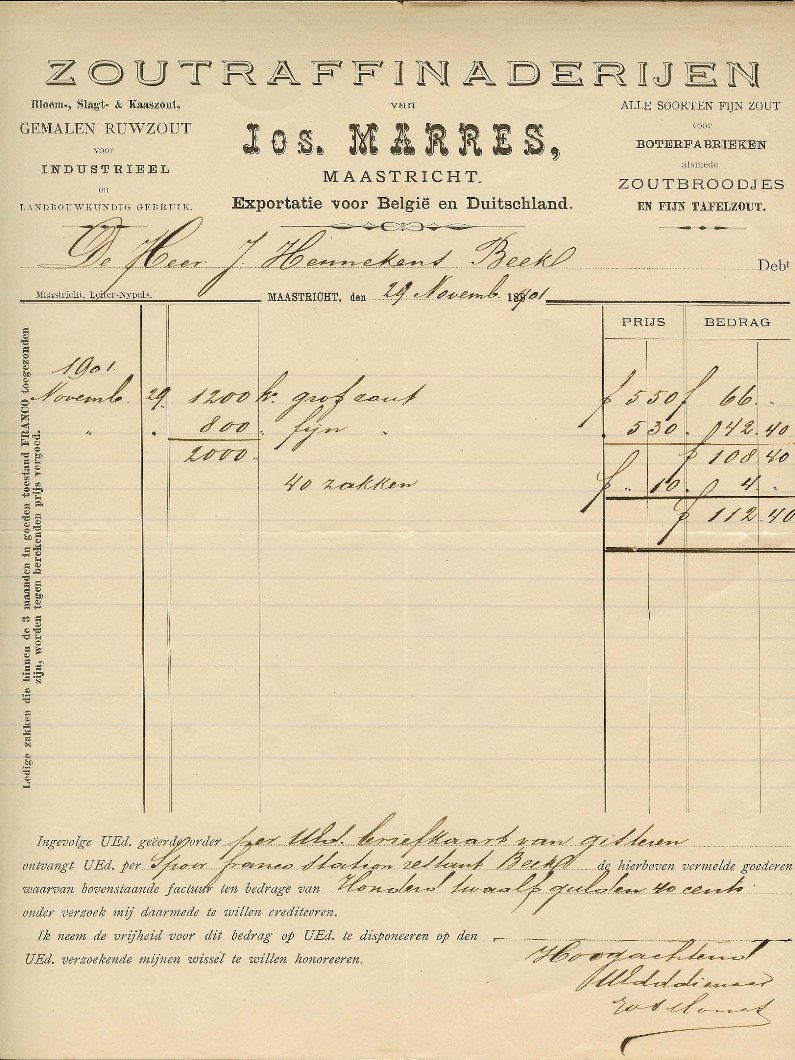 ZOUTRAFFINADERIJEN
Bloem-, Slagt- & Kaaszout,
GEMALEN RUWZOUT
voor
INDUSTRIEEL
en
LANDBOUWKUNDIG GEBRUIK.
van
JOS. MARRES,
MAASTRICHT.
Exportatie voor België en Duitschland.
ALLE SOORTEN FIJN ZOUT
voor
BOTERFABRIEKEN
alsmede
ZOUTBROODJES
EN FIJN TAFELZOUT.
De Heer J. Hennekens Beek Debt
Maastricht, Leiter-Nypels. MAASTRICHT, den 29 Novemb. 1901
PRIJS BEDRAG
1901
Novemb. 29 1200 ko grof zout f 5 50 f 66 . .
" . 800 . fijn . . 5 30 . 42.40
2000 . f 108 40
40 zakken f " 10 . 4 .
f 112.40
Ledige zakken die binnen de 3 maanden in goeden toestand FRANCO toegezonden
zijn, worden tegen berekenden prijs vergoed.
Ingevolge UEd. geëerde order per UEd. briefkaart van gisteren
ontvangt UEd. per Spoor franco station restant Beek de hierboven vermelde goederen
waarvan bovenstaande factuur ten bedrage van Honderd twaalf gulden 40 cents
onder verzoek mij daarmede te willen crediteeren.
Ik neem de vrijheid voor dit bedrag op UEd. te disponeeren op den —
UEd. verzoekende mijnen wissel te willen honoreeren.
Hoogachtend
UEddienaar
Jos Marres